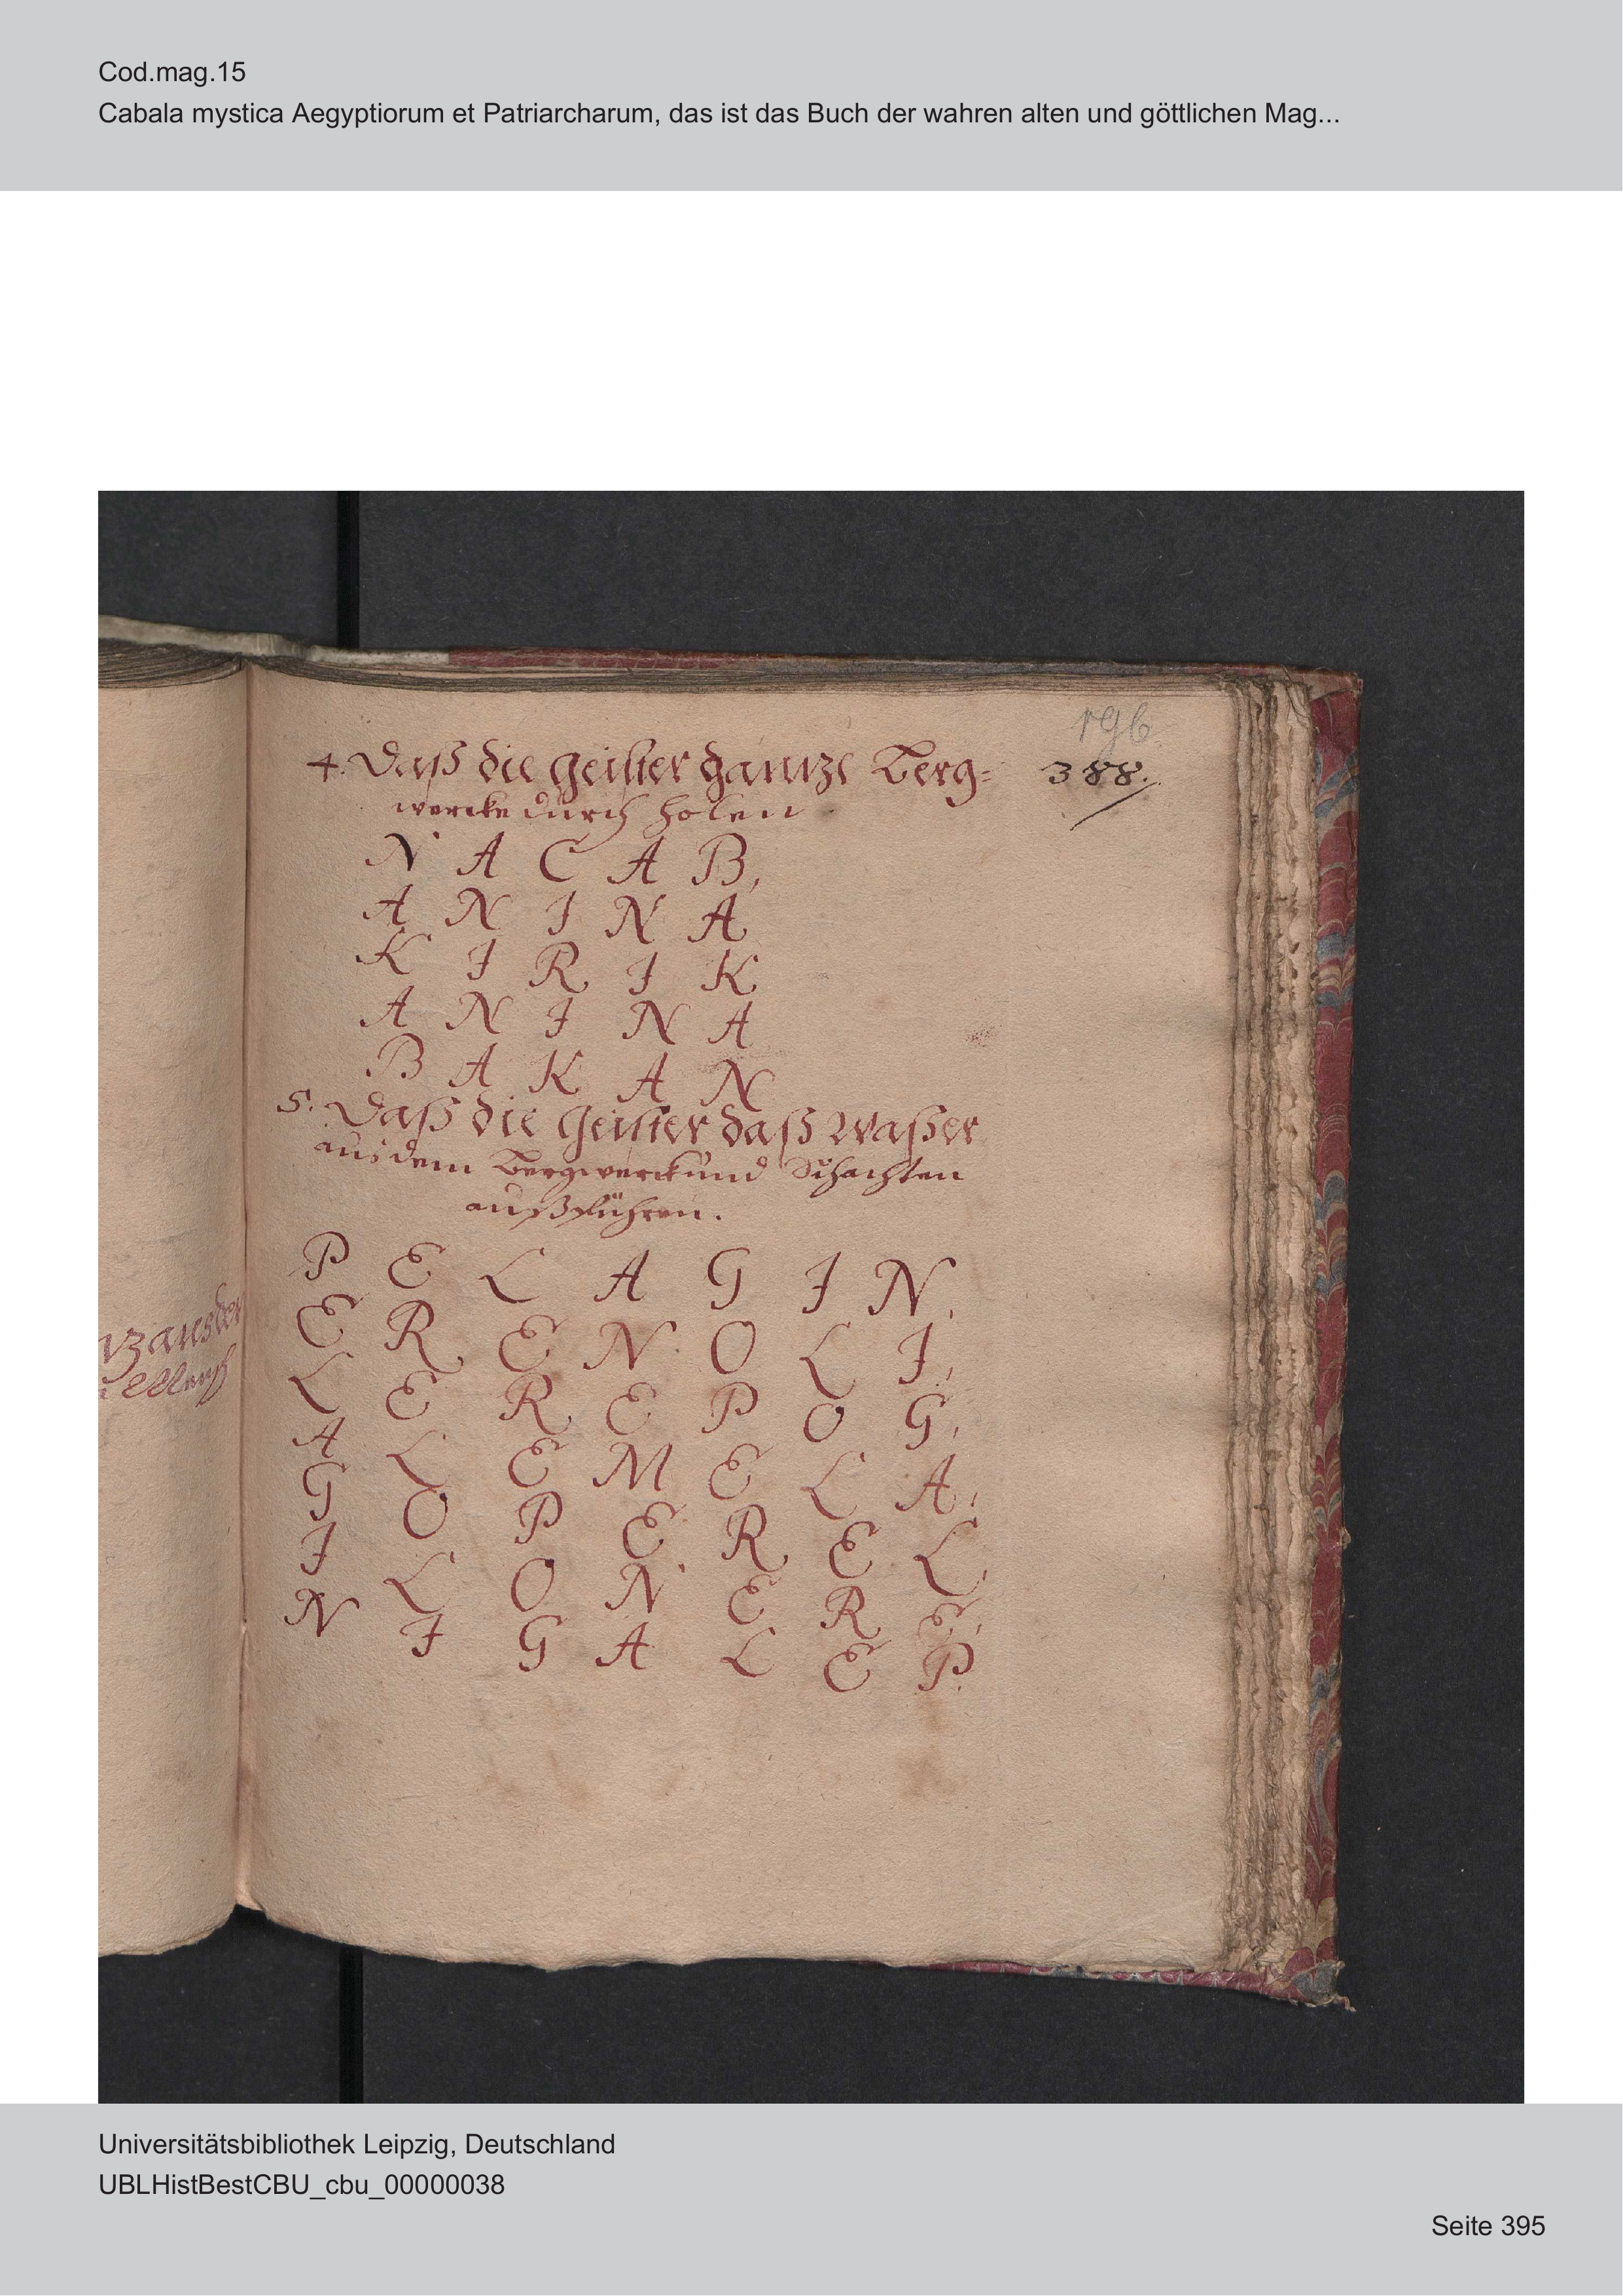 Cod.mag.15
Cabala mystica Aegyptiorum et Patriarcharum, das ist das Buch der wahren alten und göttlichen Mag...
196
388.
4. Daß die geister gantze Berg=
wercke durch holen
N A C A B,
A N I N A
K I R I K
A N I N A
B A K A N
5. Daß die Geister daß Waßer
aus dem Bergwerck und Schachten
außführen.
P E L A G I N,
E R E N O L I,
L E R E P O G,
A L E M E L A,
G O P E R E L,
I L O N E R E,
N I G A L E P.
Universitätsbibliothek Leipzig, Deutschland
UBLHistBestCBU_cbu_00000038
Seite 395